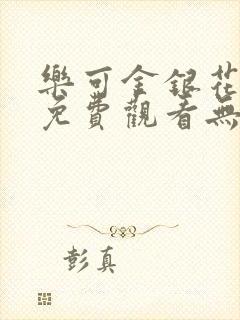 樂可金銀花
免費觀看無
彭真